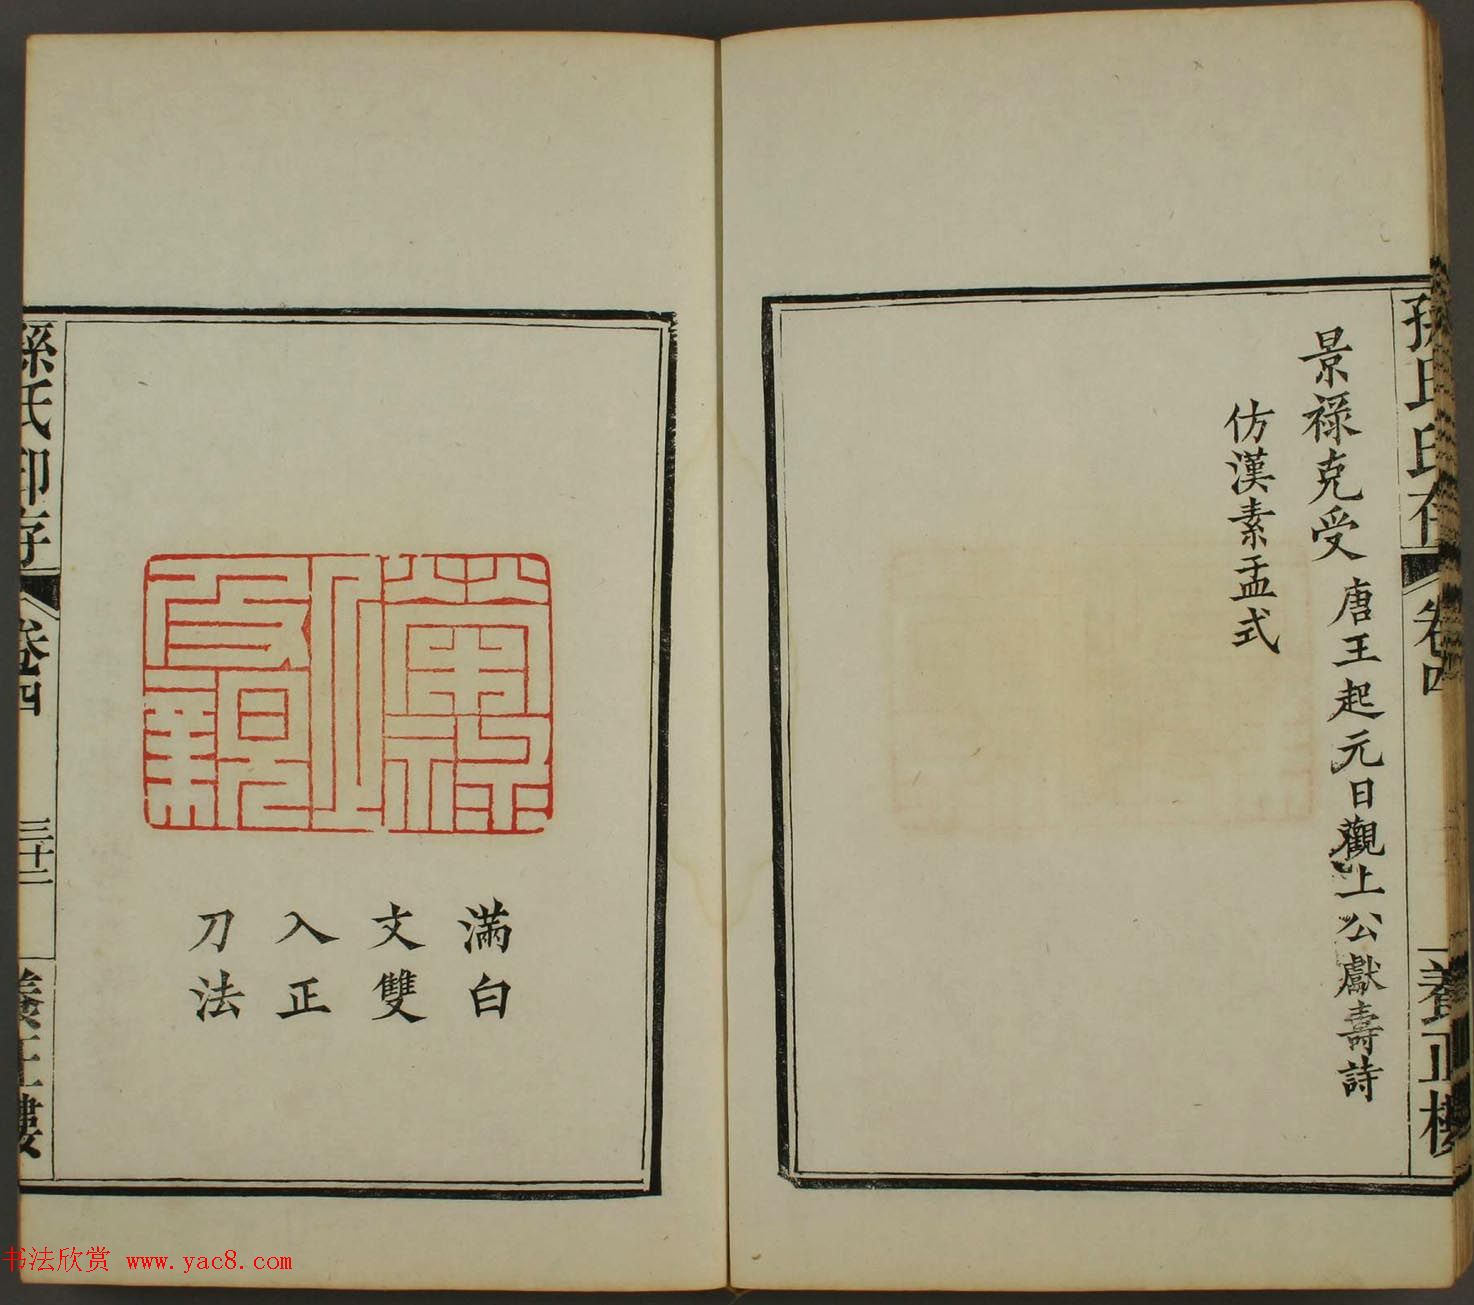 孫氏印存
卷四
養正樓
景祿克受
唐王起元日觀上公獻壽詩
仿漢素盂式
滿白
文雙
入正
刀法
孫氏印存
卷四
三十二
養正樓
书法欣赏 www.yac8.com